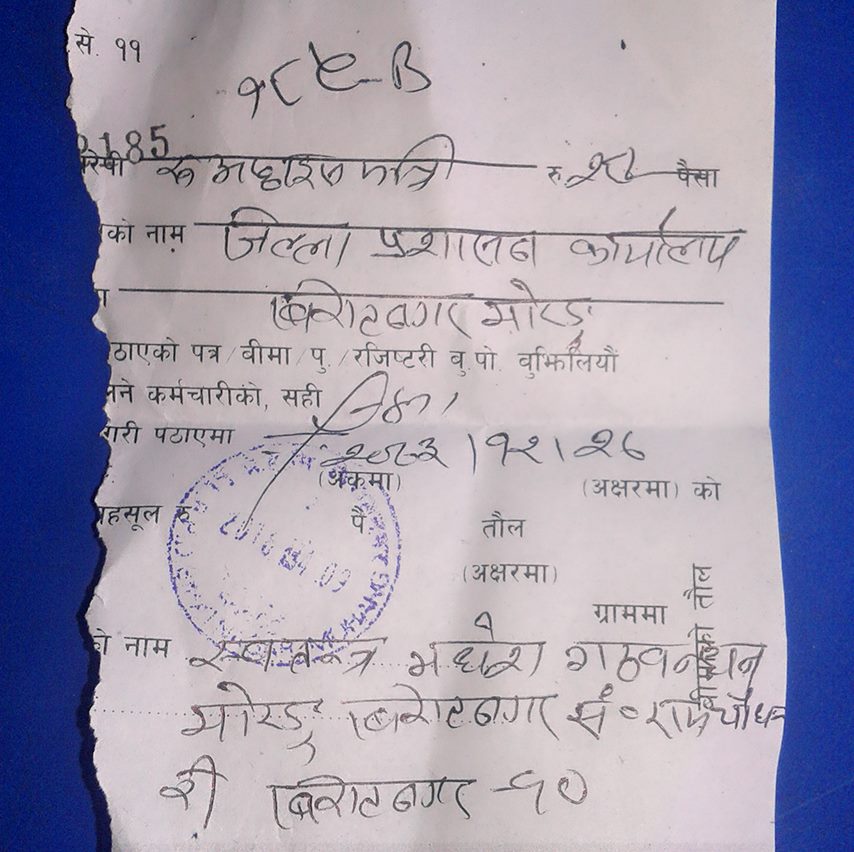 से. ११
१८९-B
185
रु अढ्ढाइस मात्रि रु. २८ पैसा
को नाम जिल्ला प्रशासन कार्यालय
बिराटनगर मोरङ
ठाएको पत्र/बीमा/पु./रजिष्टरी बु.पो. बुझिलियौं
लने कर्मचारीको, सही
गरी पठाएमा २०७२।१२।२८
(अंकमा) (अक्षरमा) को
महसूल रु पै तौल
2016 04 09
(अक्षरमा)
ग्राममा
को नाम स्वतन्त्र मधेश गठबन्धन
मोरङ बिराटनगर सं॰ राम चौध
री बिराटनगर -१०